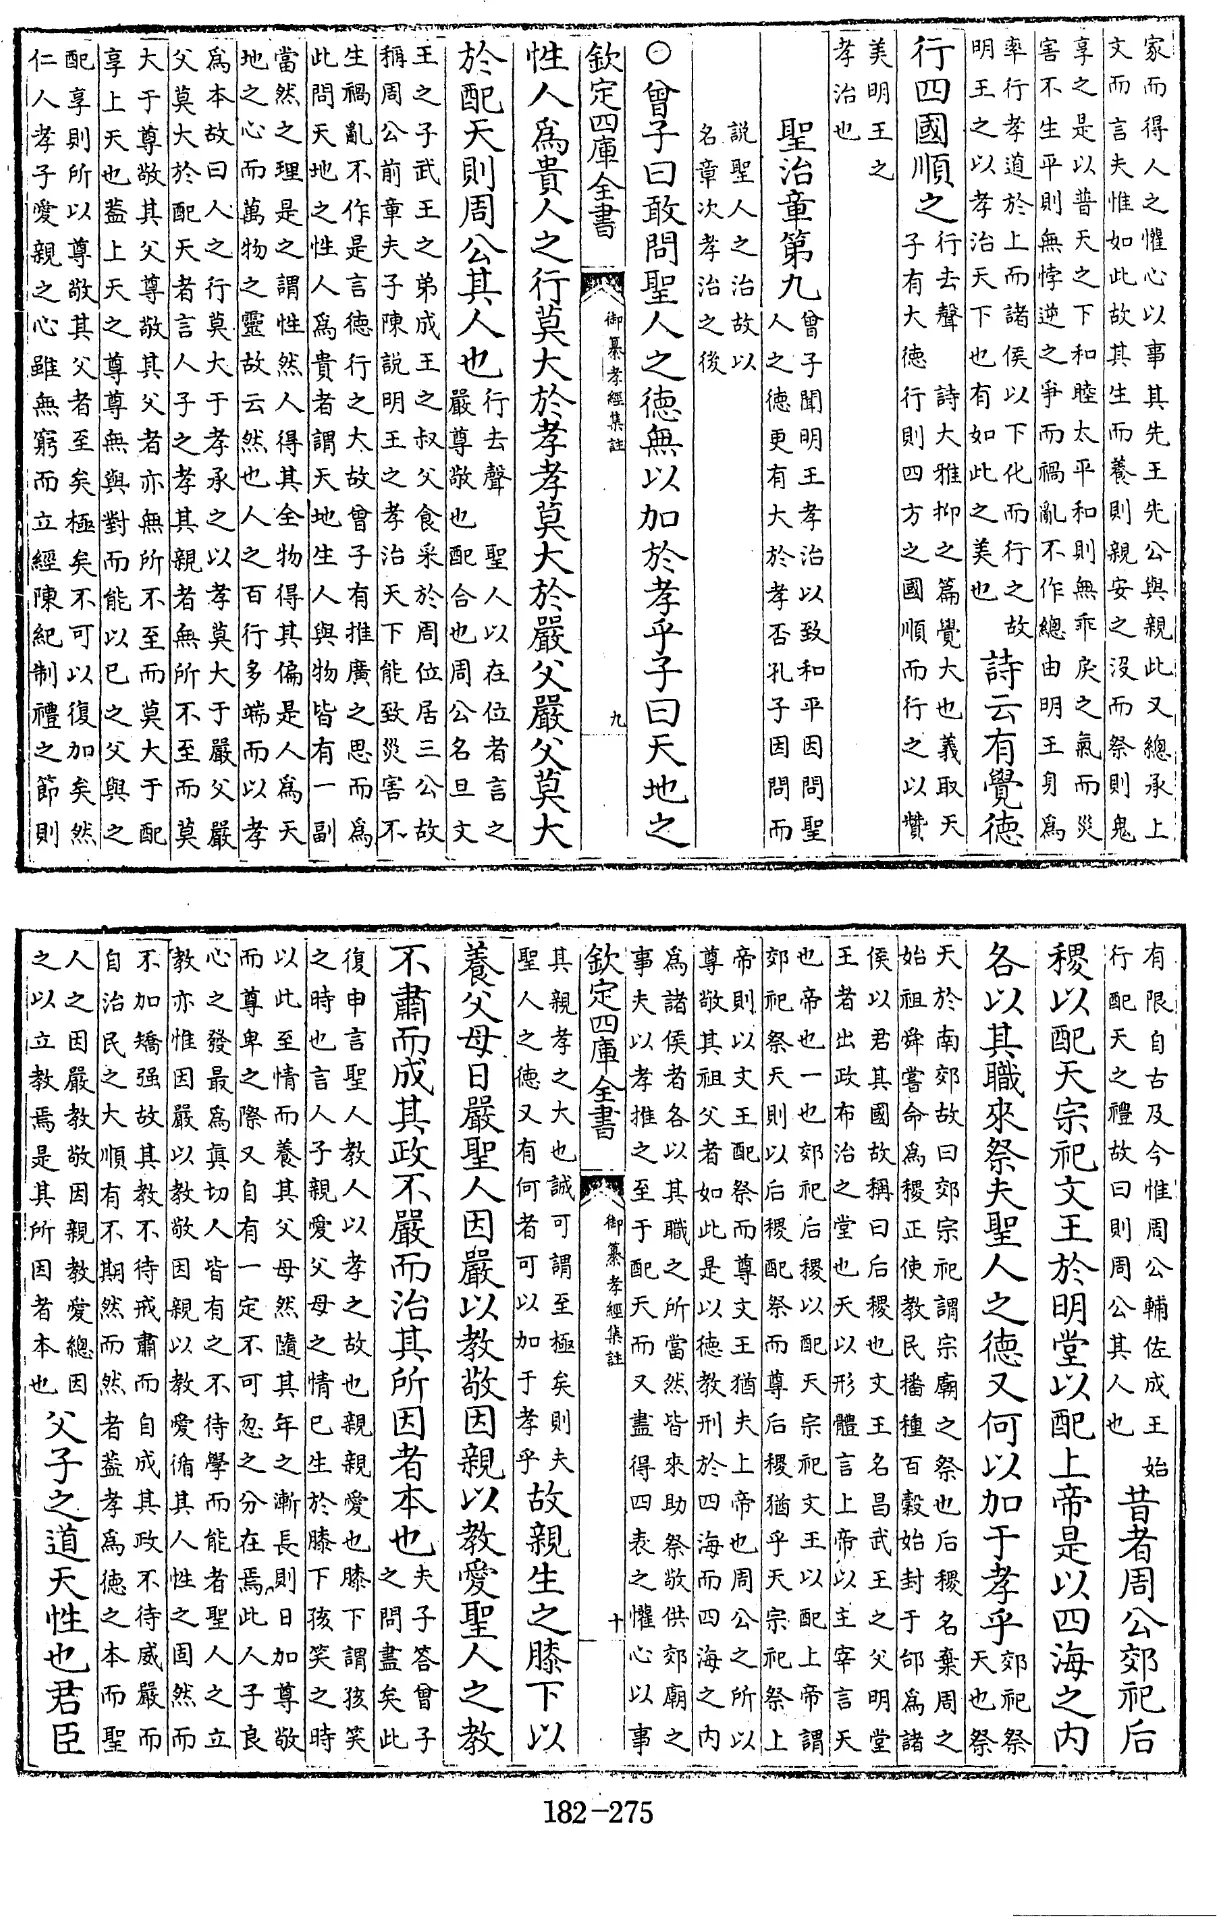 家而得人之懽心以事其先王先公與親此又總承上
文而言夫惟如此故其生而養則親安之沒而祭則鬼
享之是以普天之下和睦太平和則無乖戾之氣而災
害不生平則無悖逆之爭而禍亂不作總由明王身為
率行孝道於上而諸侯以下化而行之故
明王之以孝治天下也有如此之美也
詩云有覺德
行四國順之
行去聲 詩大雅抑之篇覺大也義取天
子有大德行則四方之國順而行之以贊
美明王之
孝治也
聖治章第九
曾子聞明王孝治以致和平因問聖
人之德更有大於孝否孔子因問而
說聖人之治故以
名章次孝治之後
○曾子曰敢問聖人之德無以加於孝乎子曰天地之
欽定四庫全書 御纂孝經集註 九
性人為貴人之行莫大於孝孝莫大於嚴父嚴父莫大
於配天則周公其人也
行去聲 聖人以在位者言之
嚴尊敬也配合也周公名旦文
王之子武王之弟成王之叔父食采於周位居三公故
稱周公前章夫子陳說明王之孝治天下能致災害不
生禍亂不作是言德行之大故曾子有推廣之思而為
此問天地之性人為貴者謂天地生人與物皆有一副
當然之理是之謂性然人得其全物得其偏是人為天
地之心而萬物之靈故云然也人之百行多端而以孝
為本故曰人之行莫大于孝承之以孝莫大于嚴父嚴
父莫大於配天者言人子之孝其親者無所不至而莫
大于尊敬其父尊敬其父者亦無所不至而莫大于配
享上天也蓋上天之尊尊無與對而能以已之父與之
配享則所以尊敬其父者至矣極矣不可以復加矣然
仁人孝子愛親之心雖無窮而立經陳紀制禮之節則
有限自古及今惟周公輔佐成王始
行配天之禮故曰則周公其人也
昔者周公郊祀后
稷以配天宗祀文王於明堂以配上帝是以四海之內
各以其職來祭夫聖人之德又何以加于孝乎
郊祀祭
天也祭
天於南郊故曰郊宗祀謂宗廟之祭也后稷名棄周之
始祖舜嘗命為稷正使教民播種百穀始封于邰為諸
侯以君其國故稱曰后稷也文王名昌武王之父明堂
王者出政布治之堂也天以形體言上帝以主宰言天
也帝也一也郊祀后稷以配天宗祀文王以配上帝謂
郊祀祭天則以后稷配祭而尊后稷猶乎天宗祀祭上
帝則以文王配祭而尊文王猶夫上帝也周公之所以
尊敬其祖父者如此是以德教刑於四海而四海之內
為諸侯者各以其職之所當然皆來助祭敬供郊廟之
事夫以孝推之至于配天而又盡得四表之懽心以事
欽定四庫全書 御纂孝經集註 十
其親孝之大也誠可謂至極矣則夫
聖人之德又有何者可以加于孝乎
故親生之膝下以
養父母日嚴聖人因嚴以教敬因親以教愛聖人之教
不肅而成其政不嚴而治其所因者本也
夫子答曾子
之問盡矣此
復申言聖人教人以孝之故也親親愛也膝下謂孩笑
之時也言人子親愛父母之情已生於膝下孩笑之時
以此至情而養其父母然隨其年之漸長則日加尊敬
而尊卑之際又自有一定不可忽之分在焉此人子良
心之發最為真切人皆有之不待學而能者聖人之立
教亦惟因嚴以教敬因親以教愛循其人性之固然而
不加矯强故其教不待戒肅而自成其政不待威嚴而
自治民之大順有不期然而然者蓋孝為德之本而聖
人之因嚴教敬因親教愛總因
之以立教焉是其所因者本也
父子之道天性也君臣
182-275